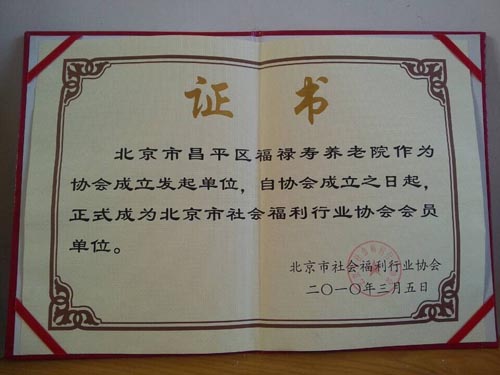 证书
北京市昌平区福禄寿养老院作为
协会成立发起单位，自协会成立之日起，
正式成为北京市社会福利行业协会会员
单位。
北京市社会福利行业协会
二〇一〇年三月五日